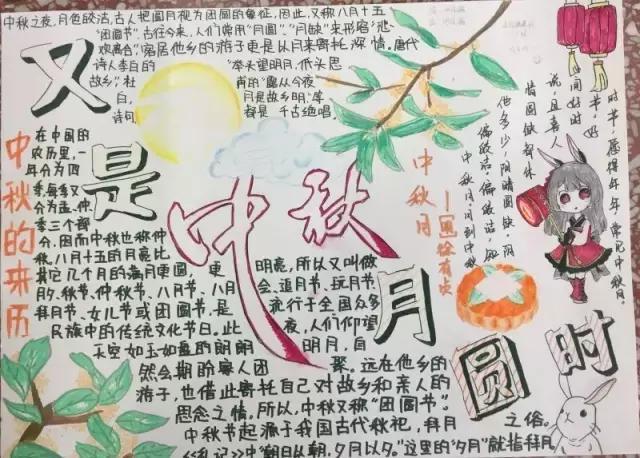 中秋之夜，月色皎洁，古人把圆月视为团圆的象征，因此，又称八月十五
"团圆节"。古往今来，人们常用"月圆"、"月缺"来形容"悲
欢离合"，客居他乡的游子更是以月来寄托深情。唐代
诗人李白的 "举头望明月，低头思
故乡"，杜甫的"露从今夜
白，月是故乡明"等
诗句都是千古绝唱。
又是中秋月圆时
中秋的来历
在中国的
农历里，一
年分为四
季，每季又
分为孟、仲、
季三个部
分，因而中秋也称仲
秋。八月十五的月亮比
其它几个月的满月更圆， 更 明亮，所以又叫做
月夕、秋节、仲秋节、八月节、八月 会、追月节、玩月节、
拜月节、女儿节或团圆节，是 流行于全国众多
民族中的传统文化节日。此 夜，人们仰望
天空如玉如盘的朗朗 明月，自
然会期盼家人团 聚。远在他乡的
游子，也借此寄托自己对故乡和亲人的
思念之情。所以，中秋又称"团圆节"。
中秋节起源于我国古代秋祀，拜月 之俗。
《礼记》中"朝日以朝，夕月以夕。"这里的"夕月"就指拜月
中秋月
徐有贞
中秋月。月到中秋
偏皎洁。偏皎洁，知
他多少，阴晴圆缺。阴
晴圆缺都休
说，且喜人
间好时
节。好
时节，愿得年年，常见中秋月。